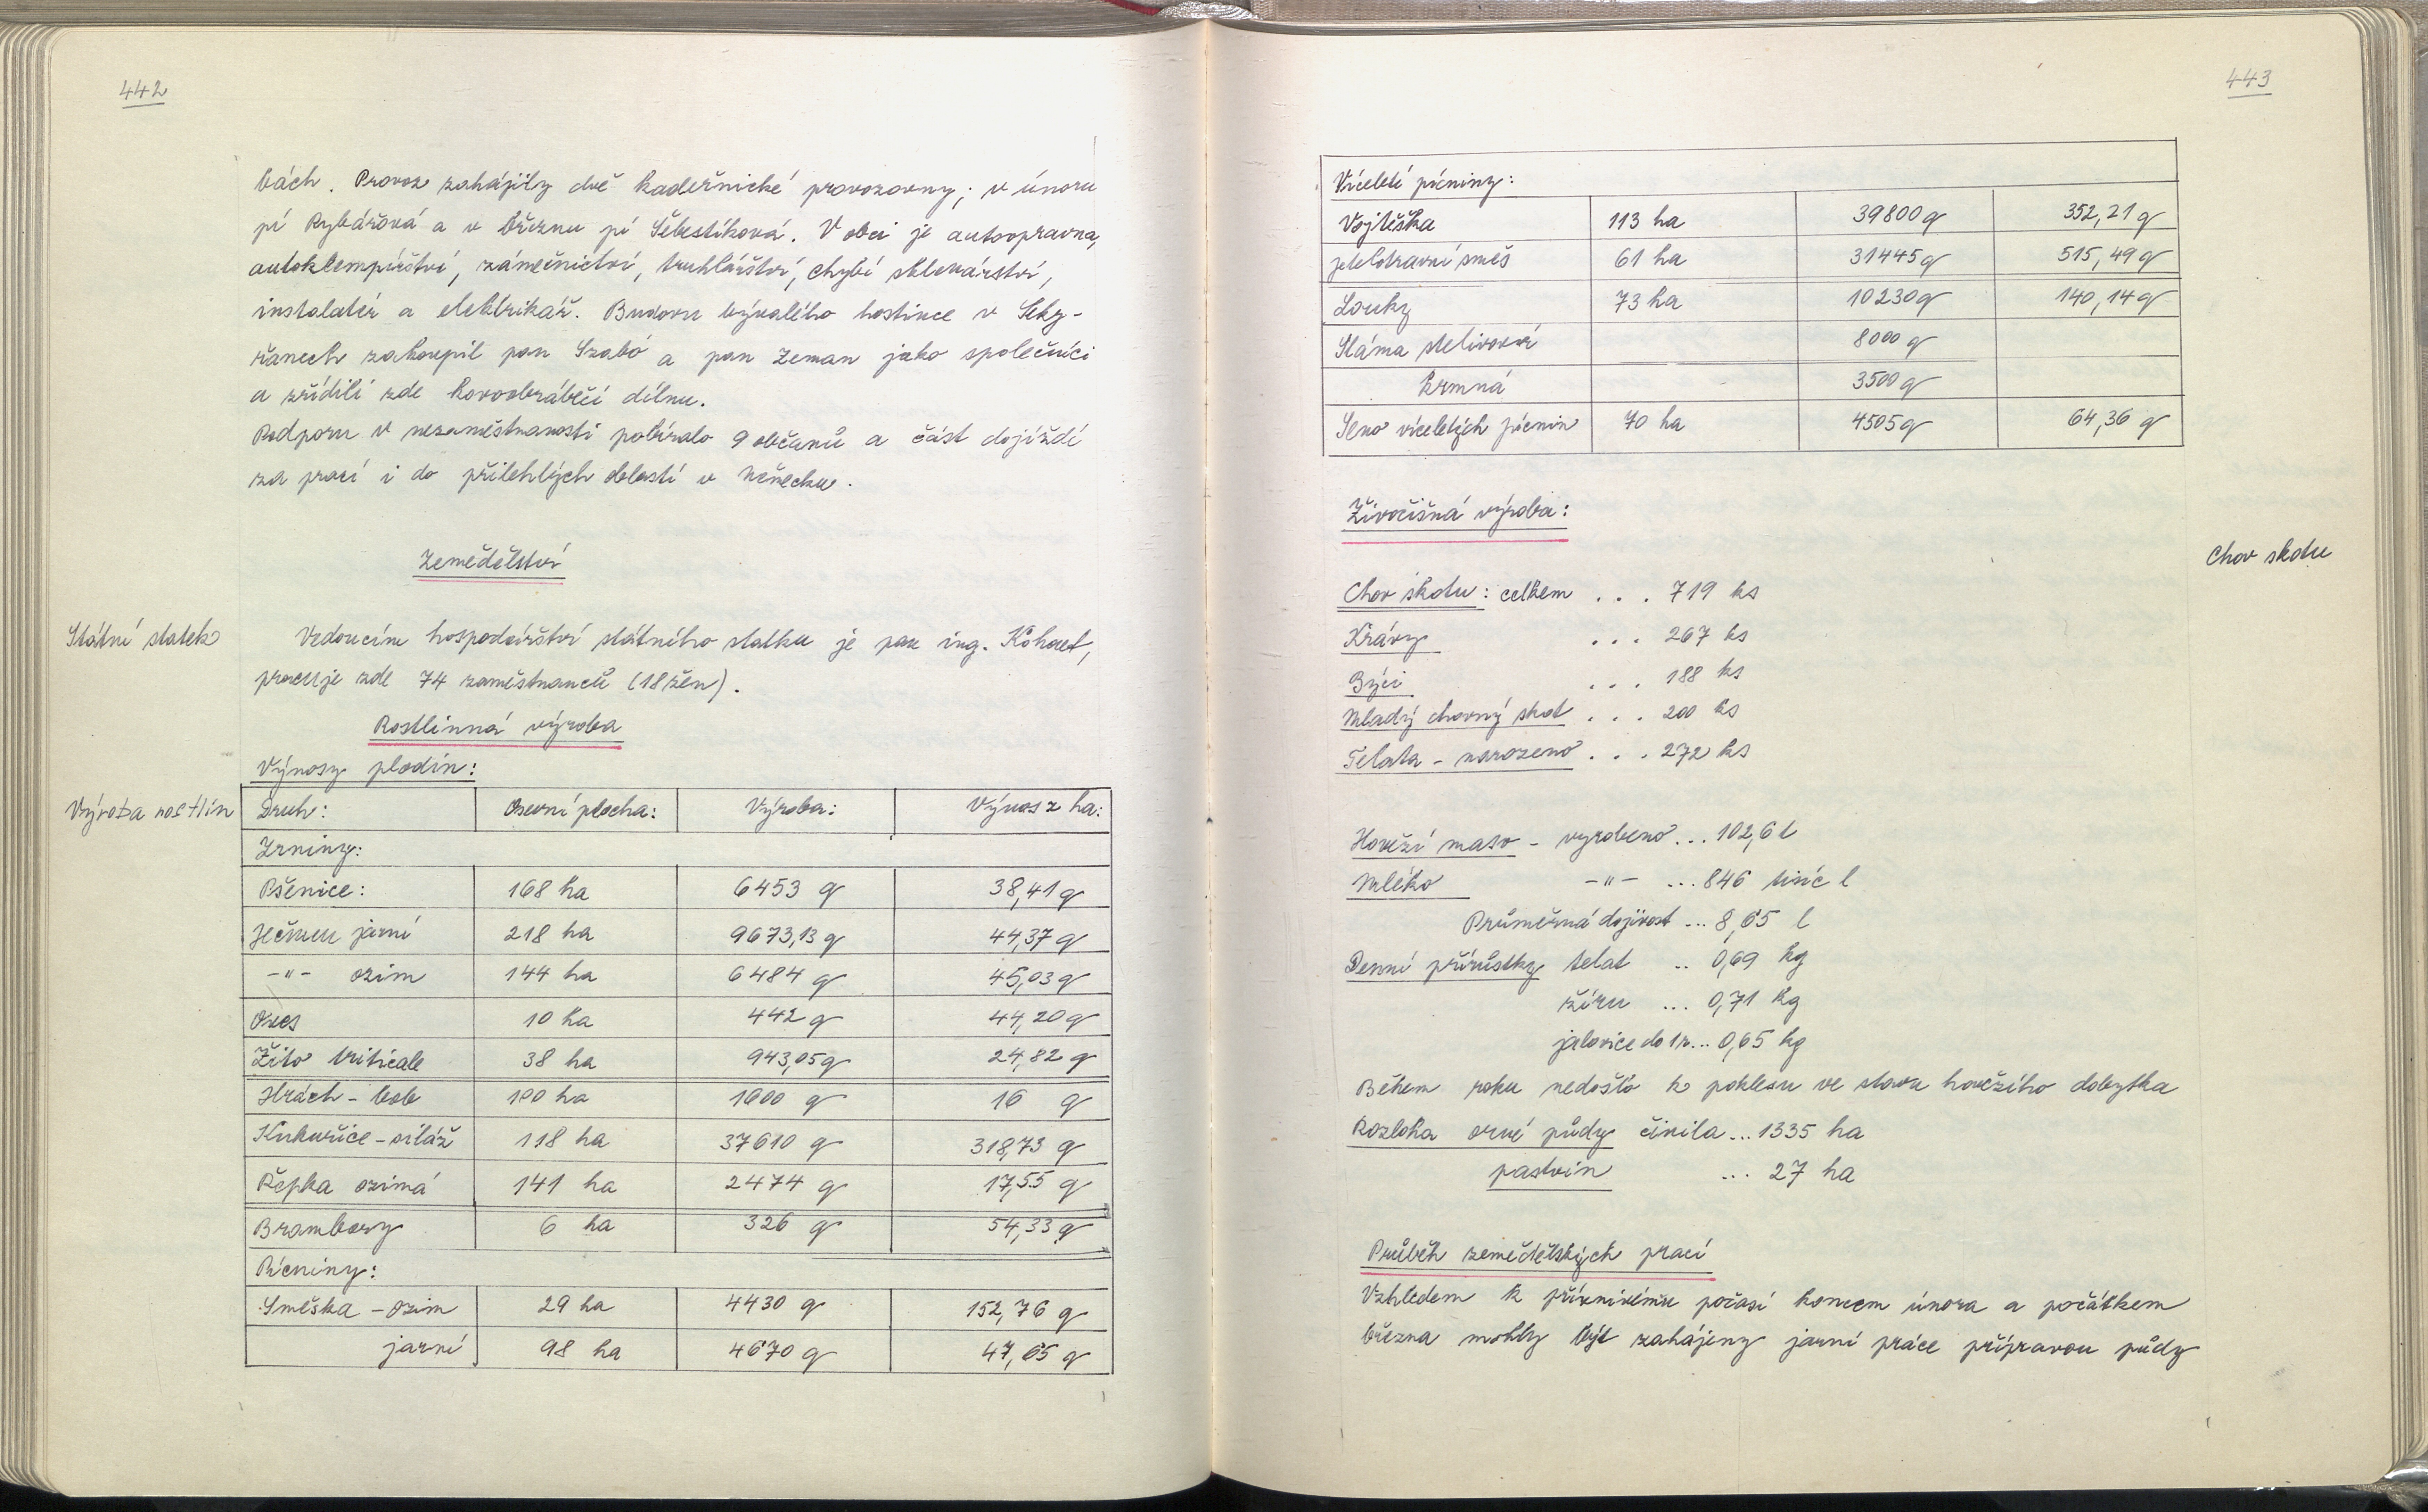 442
bách. Provoz zahájily dvě kadeřnické provozovny; v únoru
pí Rybářová a v březnu pí Šebestíková. V obci je autoopravna,
autoklempířství, zámečnictví, truhlářství, chybí sklenářství,
instalatér a elektrikář. Budovu bývalého hostince v Seky-
řanech zakoupil pan Szabó a pan Zeman jako společníci
a zřídili zde kovoobráběčí dílnu.
Podporu v nezaměstnanosti pobíralo 9 občanů a část dojíždí
za prací i do přilehlých oblastí v Německu.
Zemědělství
Státní statek
Vedoucím hospodářství státního statku je pan ing.
pracuje zde 74 zaměstnanců (18 žen).
Rostlinná výroba
Výnosy plodin:
Výroba rostlin
Druh: Osevní plocha: Výroba: Výnos z ha:
Zrniny:
Pšenice: 168 ha 6453 q 38,41 q
Ječmen jarní 218 ha 9673,13 q 44,37 q
-"- ozim 144 ha 6484 q 45,03 q
Oves 10 ha 442 q 44,20 q
Žito triticale 38 ha 943,05 q 24,82 q
Hrách - bob 100 ha 1600 q 16 q
Kukuřice - siláž 118 ha 37610 q 318,73 q
Řepka ozimá 141 ha 2474 q 17,55 q
Brambory 6 ha 326 q 54,33 q
Pícniny:
Směska - ozim 29 ha 4430 q 152,76 q
jarní 98 ha 4670 q 47,65 q
443
Víceleté pícniny:
Vojtěška 113 ha 39800 q 352,21 q
jetelotravní směs 61 ha 31445 q 515,49 q
Louky 73 ha 10230 q 140,14 q
Sláma stelivová 8000 q
krmná 3500 q
Seno víceletých pícnin 70 ha 4505 q 64,36 q
Živočišná výroba:
Chov skotu
Chov skotu: celkem ... 719 ks
Krávy ... 267 ks
Býci ... 188 ks
Mladý chovný skot ... 200 ks
Telata - narozeno ... 272 ks
Hovězí maso - vyrobeno ... 102,6 t
Mléko -"- ... 846 tisíc l
Průměrná dojivost ... 8,65 l
Denní přírůstky telat .. 0,69 kg
žíru ... 0,71 kg
jalovice do 1 r... 0,65 kg
Během roku nedošlo k poklesu ve stavu hovězího dobytka
Rozloha orné půdy činila ... 1335 ha
pastvin ... 27 ha
Průběh zemědělských prací
Vzhledem k příznivému počasí koncem února a počátkem
března mohly být zahájeny jarní práce přípravou půdy